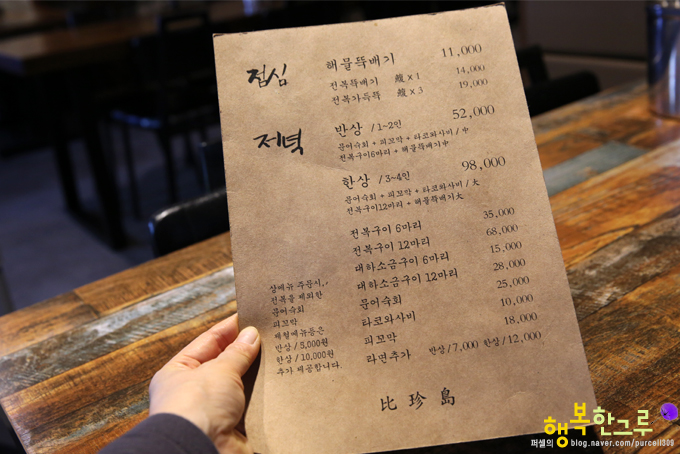 점심
해물뚝배기 11,000
전복뚝배기 鰒 X 1 14,000
전복가득뚝 鰒 X 3 19,000
저녁
반상 / 1~2인 52,000
문어숙회 + 피꼬막 + 타코와사비 / 中
전복구이6마리 + 해물뚝배기中
한상 / 3~4인 98,000
문어숙회 + 피꼬막 + 타코와사비 / 大
전복구이12마리 + 해물뚝배기大
전복구이 6마리 35,000
전복구이 12마리 68,000
대하소금구이 6마리 15,000
대하소금구이 12마리 28,000
문어숙회 25,000
타코와사비 10,000
피꼬막 18,000
라면추가 반상/7,000 한상/12,000
상메뉴 주문시,
전복을 제외한
문어숙회
피꼬막
해물메뉴등은
반상 / 5,000원
한상 / 10,000원
추가 제공합니다.
比珍島
퍼셀의 행복한그루
blog.naver.com/purcell309